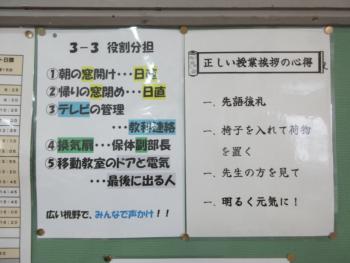 3-3 役割分担
①朝の窓開け・・・日直
②帰りの窓閉め・・・日直
③テレビの管理
・・・教科連絡
④換気扇・・・保体副部長
⑤移動教室のドアと電気
・・・最後に出る人
広い視野で、みんなで声かけ！！
正しい授業挨拶の心得
一、先語後礼
一、椅子を入れて荷物
を置く
一、先生の方を見て
一、明るく元気に！